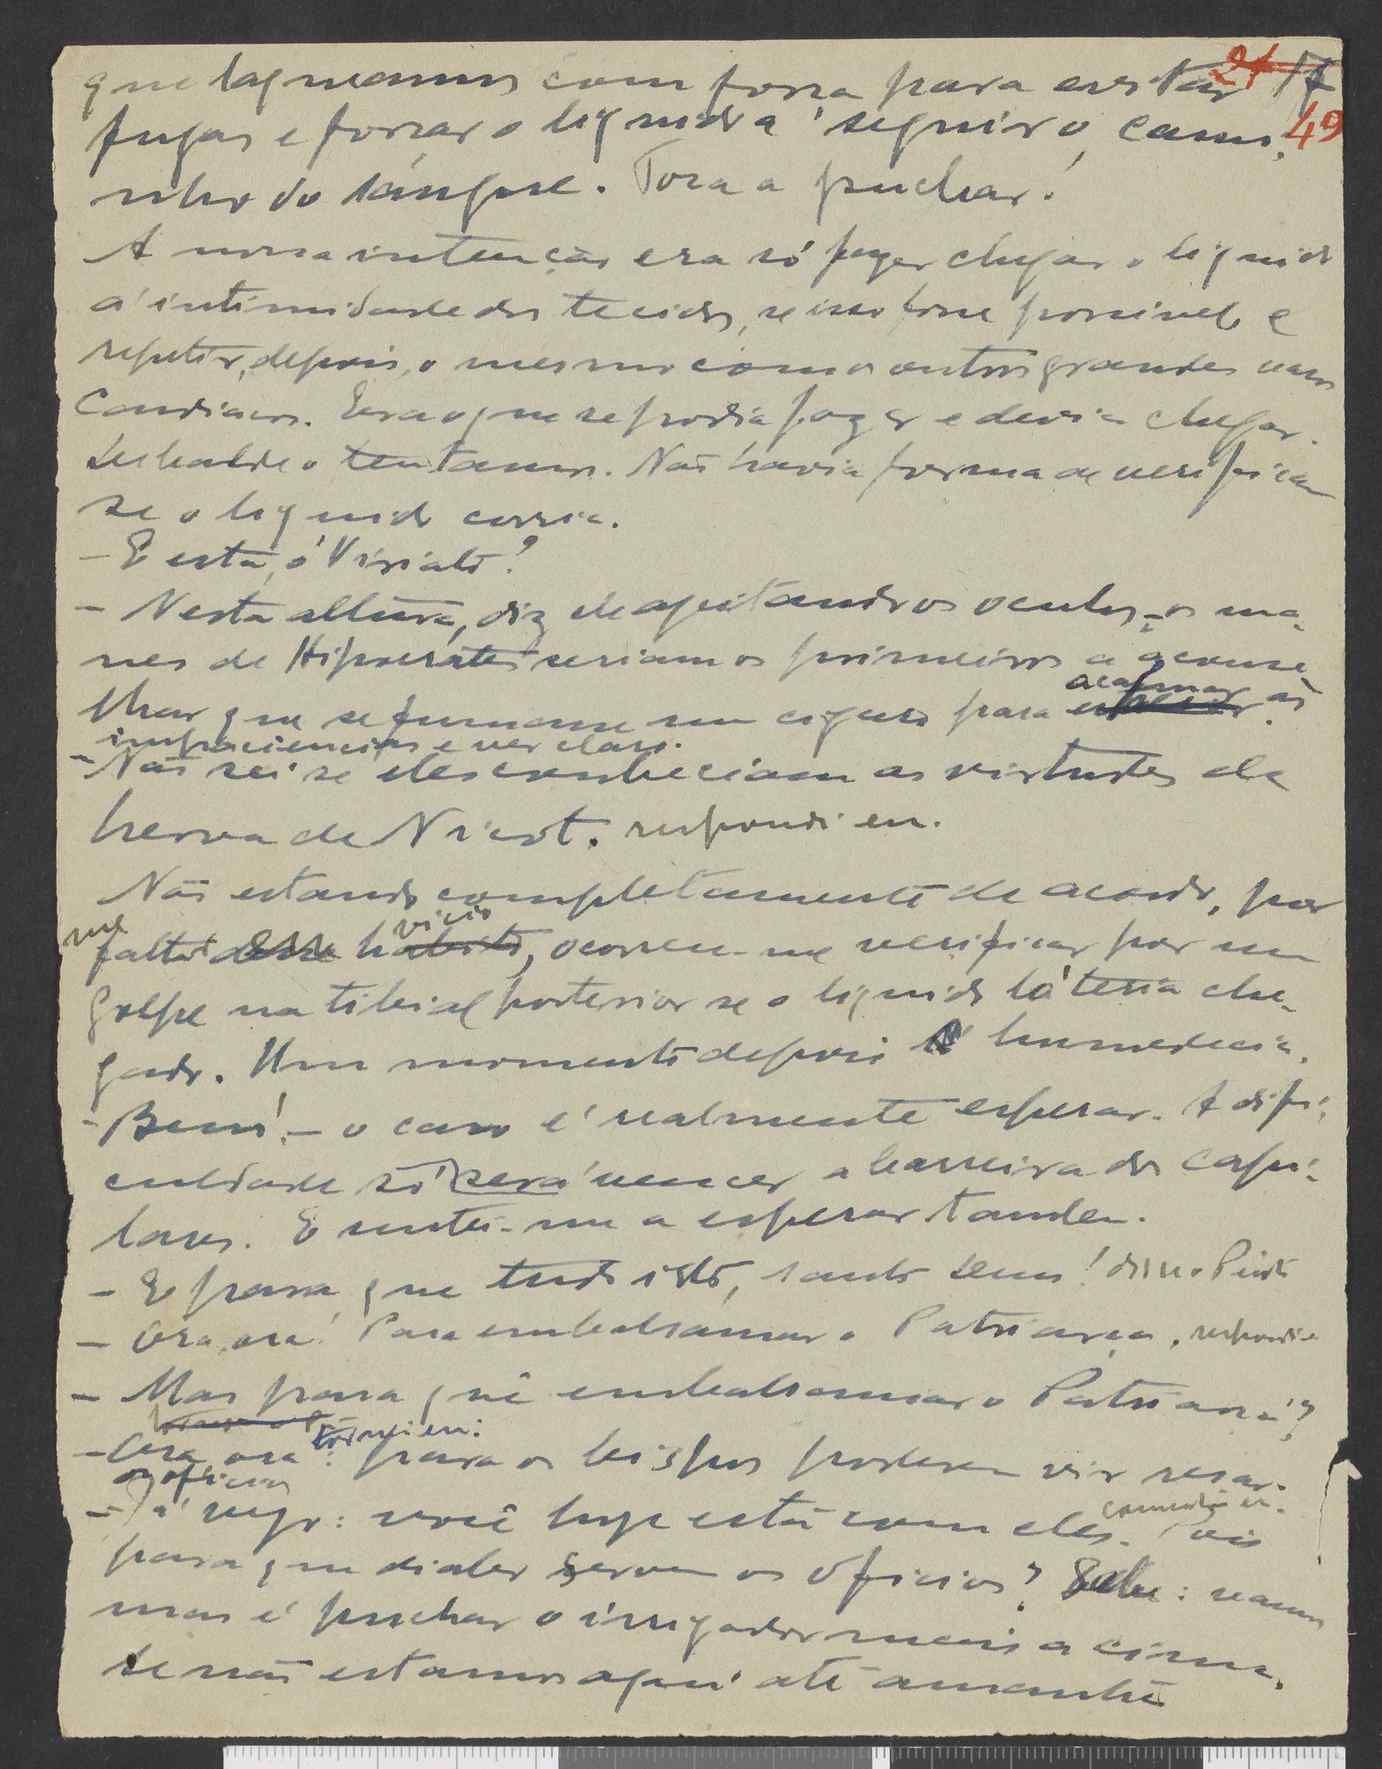 que laqueamos com força para evitar 21 17
fugas e forçar o liquido a seguir o cami- 49
nho do sangue. Toca a puchar!
A nossa intenção era só fazer chegar o liquido
á intimidade dos tecidos, se isso fosse possivel, e
repetir, depois, o mesmo com os outros grandes vasos
Era o que se podia fazer e devia chegar.
Debalde o tentamos. Não havia forma de verificar
se o liquido corria.
- E esta, ó Viriato?
- Nesta altura, diz ele ajeitando os oculos, - os ma-
nes de Hipocrates seriam os primeiros a aconse-
acalmar
lhar que se fumasse um cigarro para as
impaciencias e ver claro.
- Não sei se eles conheciam as virtudes da
herva de Nicot. respondi eu.
Não estando completamente de acordo, por
me vicio
faltar esse habito, ocorreu-me verificar por um
golpe na tibial posterior se o liquido lá teria che-
gado. Um momento depois humedecia.
- Bem! - o caso é realmente esperar. A difi-
culdade só será vencer a barreira dos capi-
lares. E sentei-me a esperar tambem.
- E para que tudo isto, santo Deus! disse o Pinto
- Ora, ora! Para embalsamar o Patriarca, respondi
- Mas para quê embalsamar o Patriarca?
tornei eu:
- Ora, ora: para os bispos poderem vir resar
os oficios
- Já vejo: você hoje está com eles. Pois
comentou
para que diabo servem os oficios? Sabe: vamos
mas é puchar o irrigador mais a cima,
se não estamos aqui até amanhã